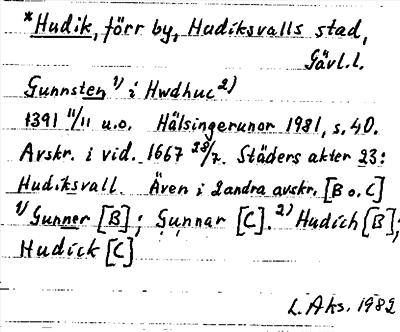 *Hudik, förr by, Hudiksvalls stad,
Gävl.l.
Gunnsten 1) i Hwdhuc 2)
1391 11/11 u.o. Hälsingerunor 1981, s. 40.
Avskr. i vid. 1667 28/7. Städers akter 23:
Hudiksvall. Även i 2 andra avskr. [B o. C]
1) Gunner [B]; Gunnar [C]. 2) Hudich [B];
Hudick [C]
L. Aks. 1982